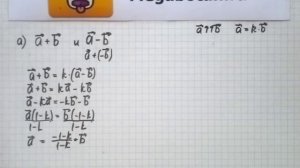 a⃗↑↑b⃗  a⃗ = k·b⃗
а) a⃗ + b⃗  и  a⃗ − b⃗
a⃗ + (−b⃗)
a⃗ + b⃗ = k·(a⃗ − b⃗)
a⃗ + b⃗ = ka⃗ − kb⃗
a⃗ − ka⃗ = −kb⃗ − b⃗
a⃗(1−k)/1−k = b⃗(−1−k)/1−k
a⃗ = −1−k/1−k · b⃗